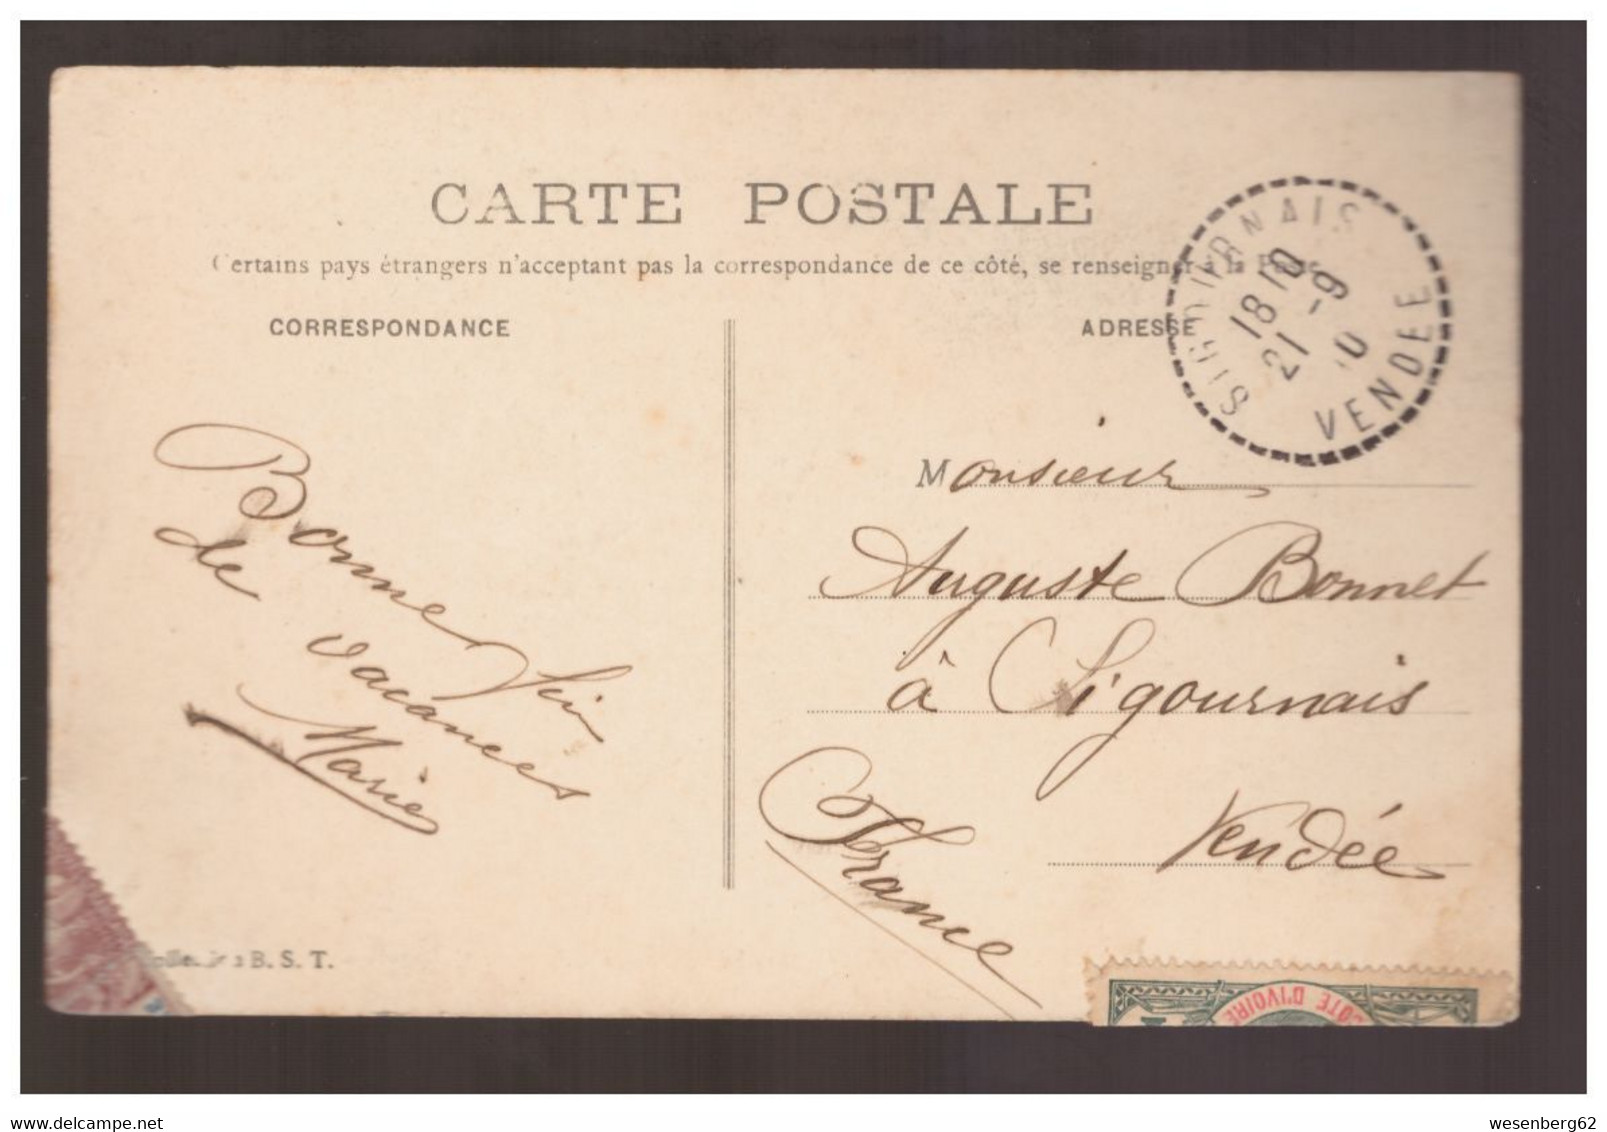 CARTE POSTALE
Certains pays étrangers n'acceptant pas la correspondance de ce côté, se renseigner à la Poste
CORRESPONDANCE
ADRESSE
SIGOURNAIS
18 10
21 -9
10
VENDEE
Bonne fin
de
vacances
Marie
Monsieur
Auguste Bonnet
à Sigournais
Vendée
France
B. S. T.
COTE D'IVOIRE
wesenberg62